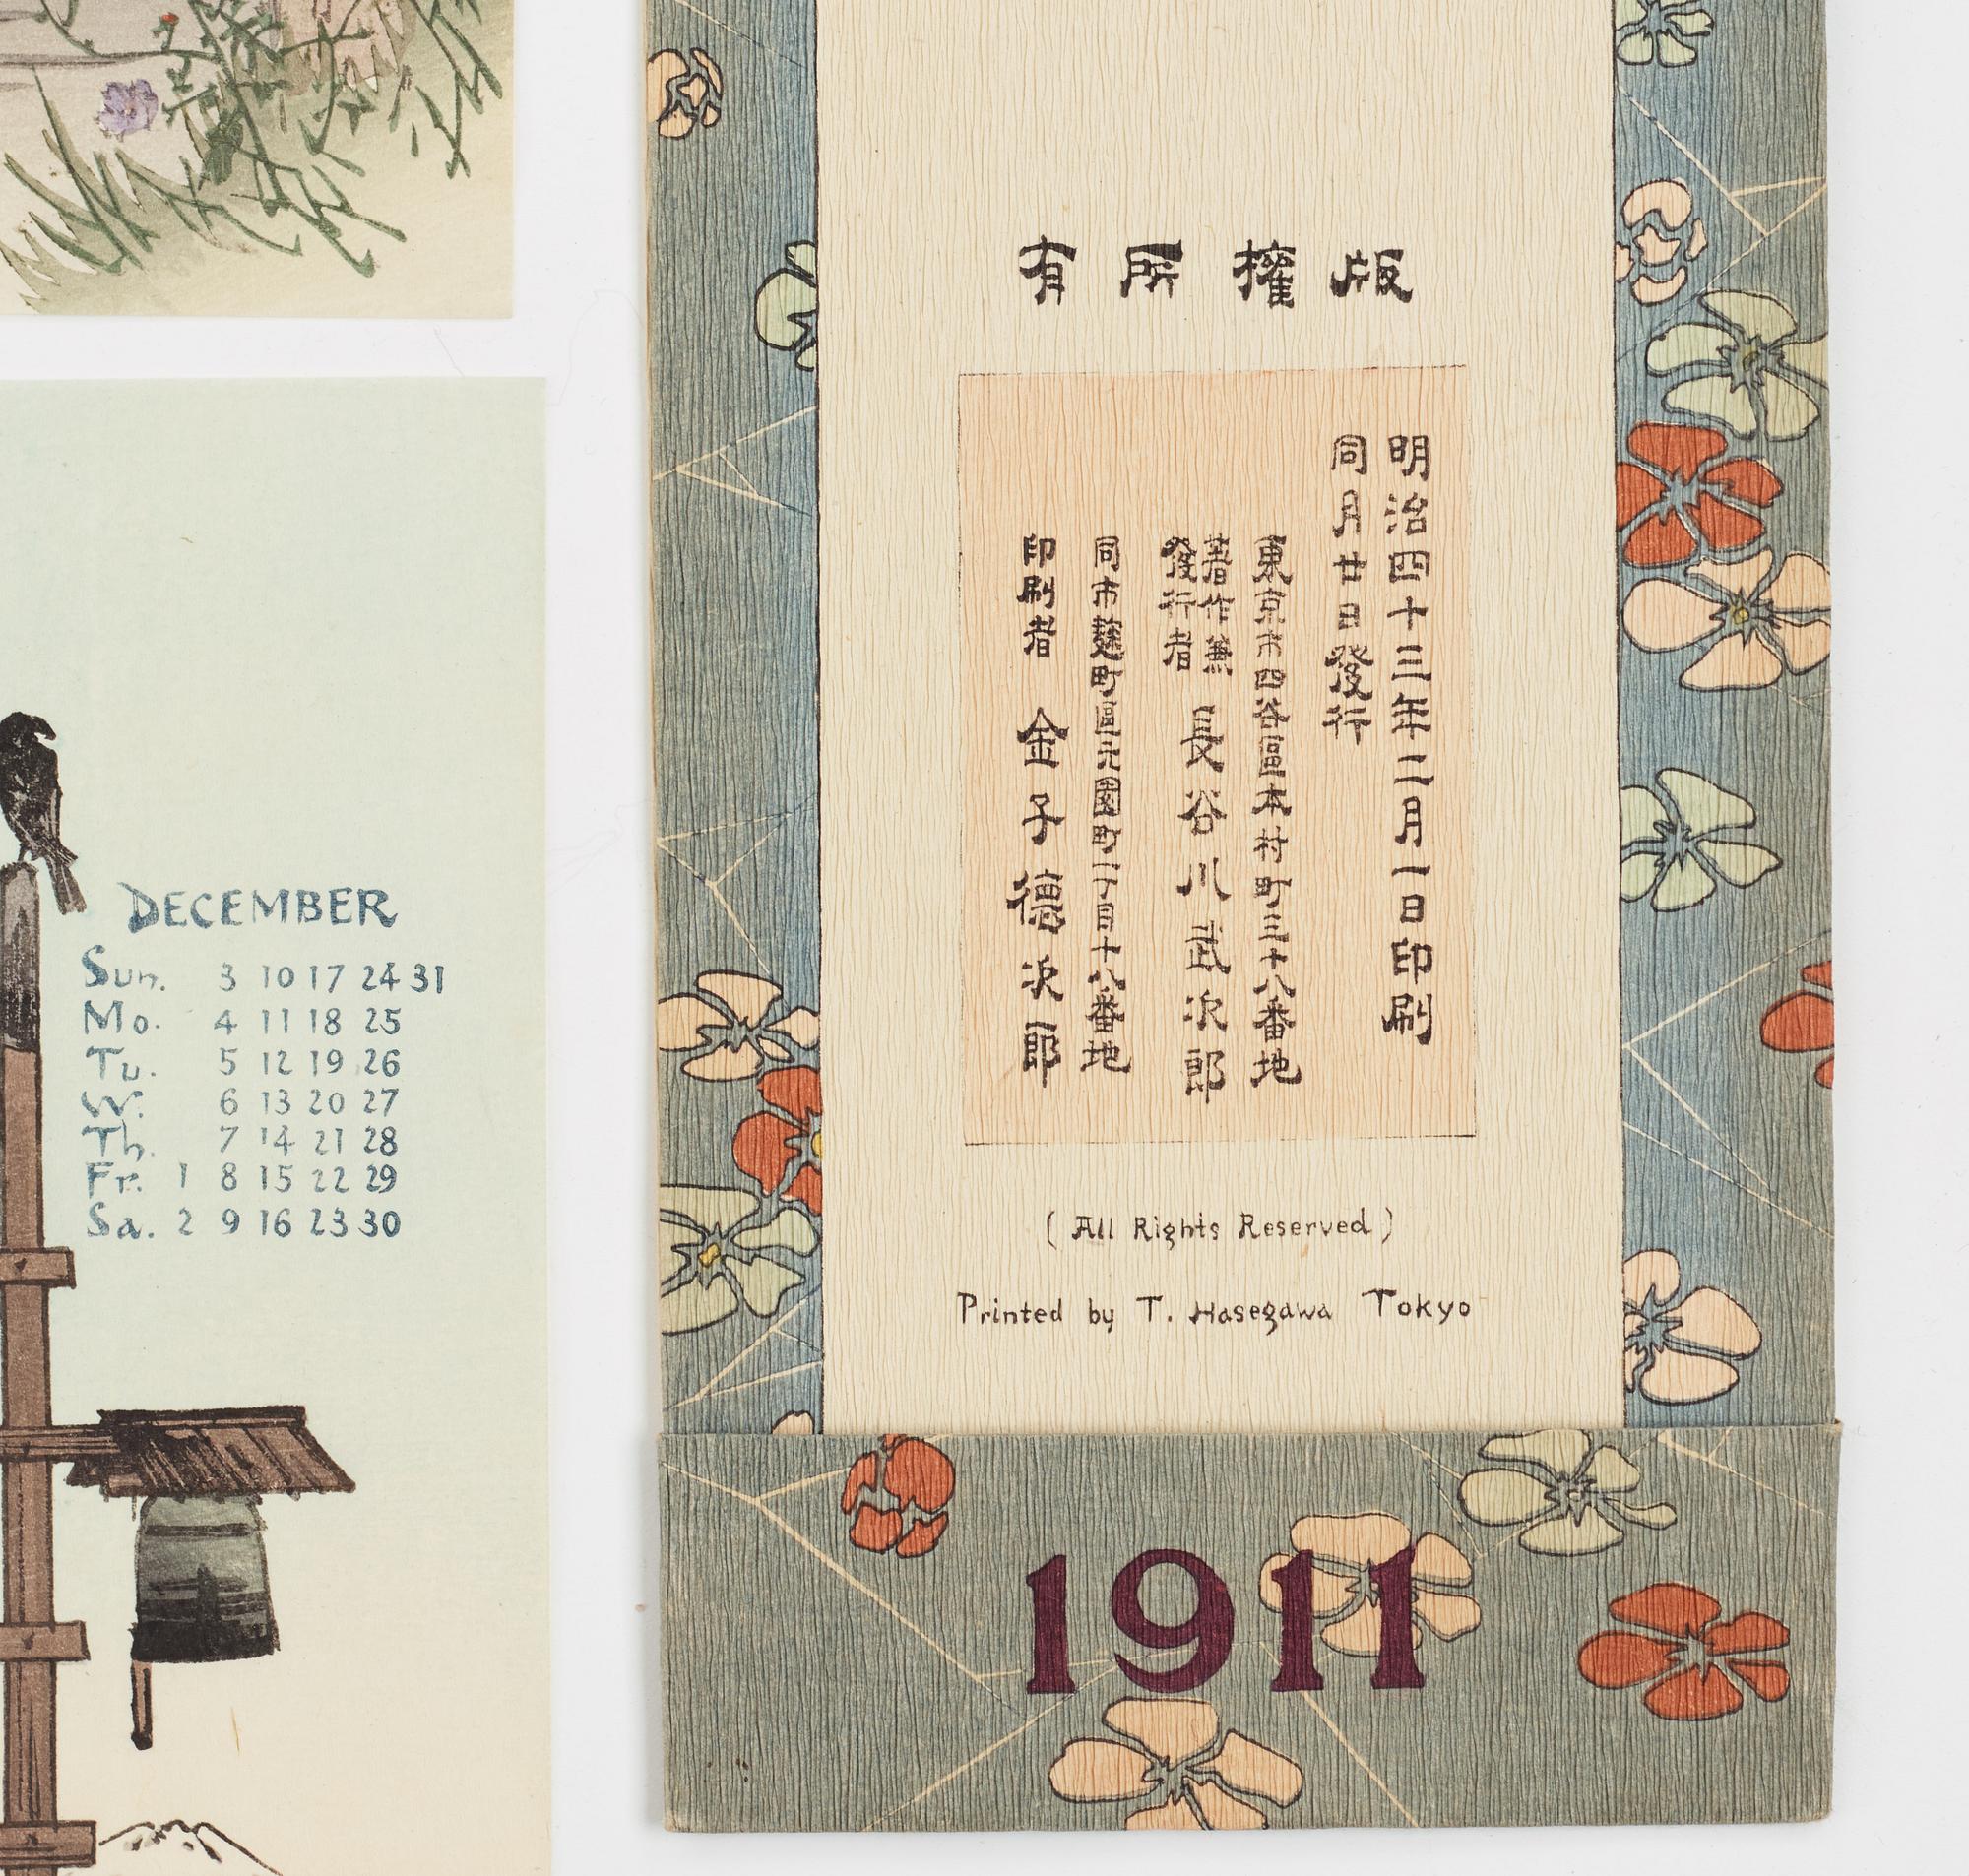 DECEMBER
Sun. 3 10 17 24 31
Mo. 4 11 18 25
Tu. 5 12 19 26
W. 6 13 20 27
Th. 7 14 21 28
Fr. 1 8 15 22 29
Sa. 2 9 16 23 30
版權所有
明治四十三年二月一日印刷
同月廿日發行
東京市四谷區本村町三十八番地
著作兼
發行者
長谷川武次郎
同市麹町區元園町一丁目十八番地
印刷者 金子德次郎
(All Rights Reserved)
Printed by T. Hasegawa Tokyo
1911